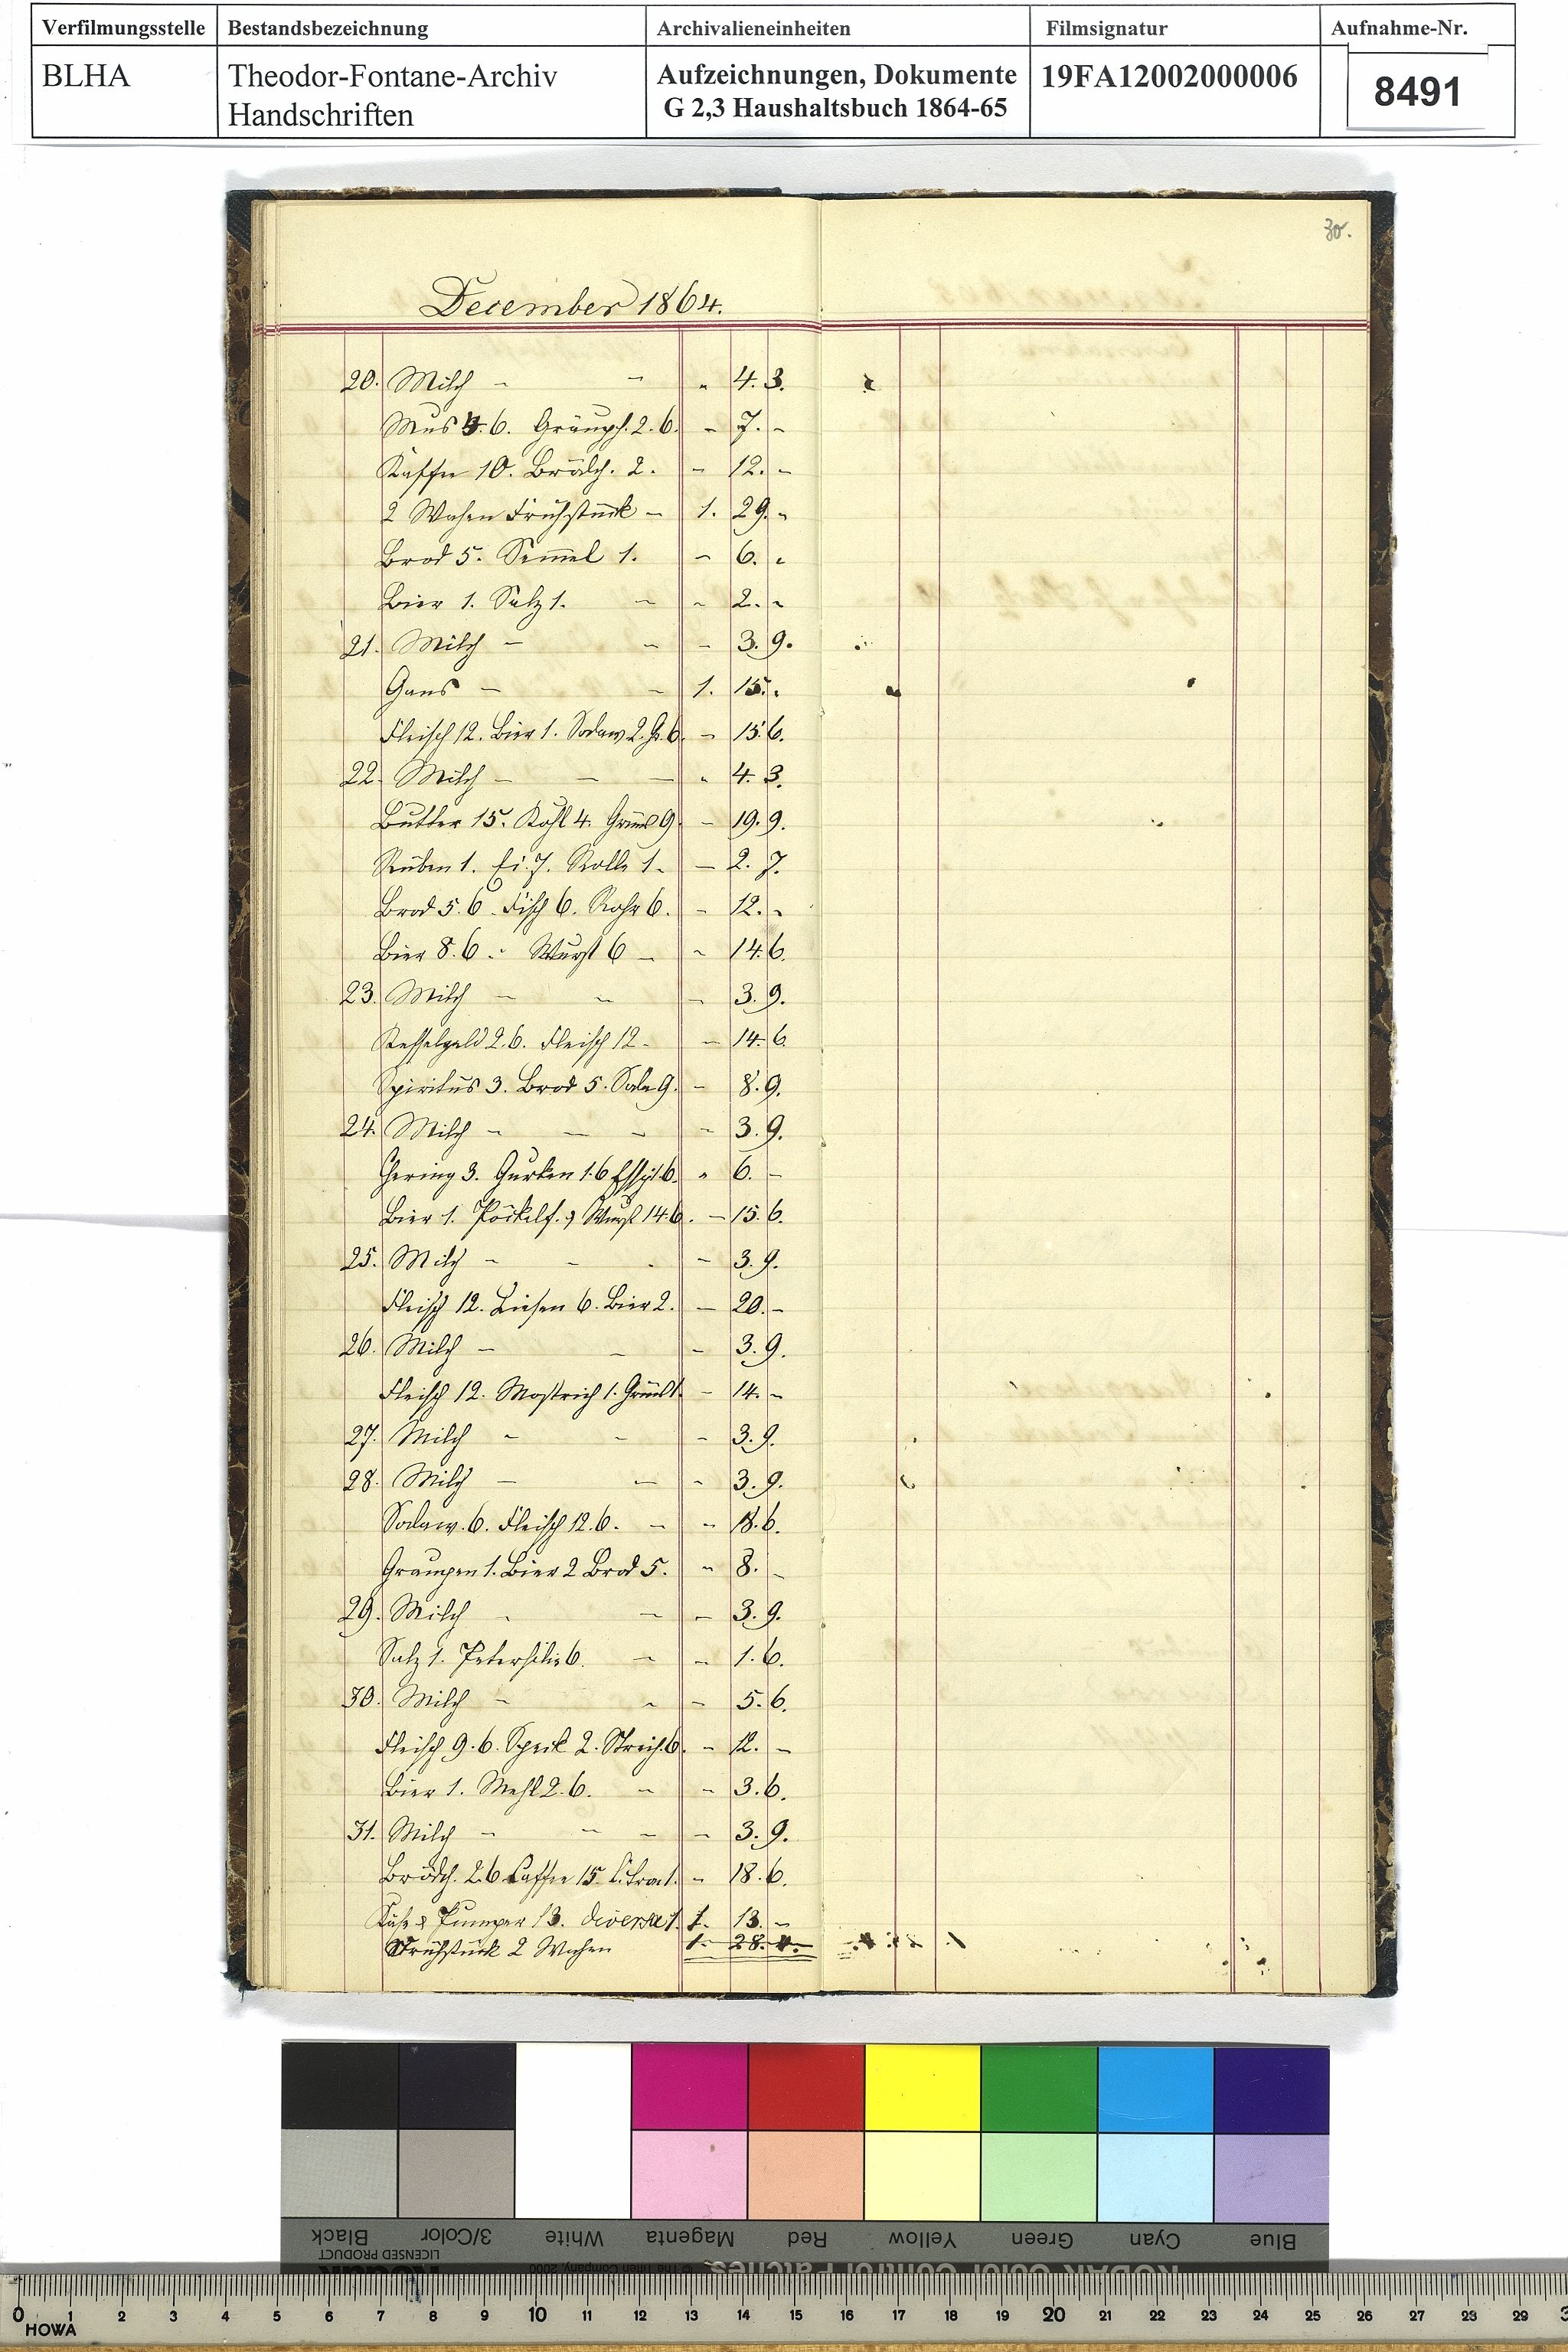 Verfilmungsstelle Bestandsbezeichnung Archivalieneinheiten Filmsignatur Aufnahme-Nr.
BLHA Theodor-Fontane-Archiv Aufzeichnungen, Dokumente 19FA12002000006 8491
Handschriften G 2,3 Haushaltsbuch 1864-65
30.
December 1864.
20. Milch - - " 4. 3.
Mus 4.6. 2.6. - 7. -
Kaffee 10. Brödch. 2. - 12. -
2 Wochen Frühstück - 1. 29. -
Brod 5. Semmel 1. - 6. -
Bier 1. Salz 1. - - 2. -
21. Milch - - - 3. 9.
Gans - - 1. 15. -
Fleisch 12. Bier 1. Sodaw 2. 6. - 15. 6.
22. Milch - - - " 4. 3.
Butter 15. Kohl 4. Grünes 9. - 19. 9.
Rüben 1. Ei. 7. Rolle 1. - 2. 7.
Brod 5.6. Fisch 6. 6. - 12. -
Bier 8.6. - Wurst 6 - - 14. 6.
23. Milch - - - 3. 9.
Kesselgeld 2.6. Fleisch 12. - 14. 6.
Spiritus 3. Brod 5. Soda 9. - 8. 9.
24. Milch - - - - 3. 9.
Hering 3. Gurken 1.6 Essig 1.6. " 6. -
Bier 1. Pöckelf. & Wurst 14.6. - 15. 6.
25. Milch - - - - 3. 9.
Fleisch 12. Liesen 6. Bier 2. - 20. -
26. Milch - - - 3. 9.
Fleisch 12. Mostrich 1. Grünes 1. - 14. -
27. Milch - - - 3. 9.
28. Milch - - - 3. 9.
Sodaw. 6. Fleisch 12.6. - - 18. 6.
Graupen 1. Bier 2 Brod 5. - 8. -
29. Milch - - - 3. 9.
Salz 1. Petersilie 6. - - 1. 6.
30. Milch - - - 5. 6.
Fleisch 9.6. Speck 2. Streich. 6. - 12. -
Bier 1. Mehl 2.6. - - 3. 6.
31. Milch - - - - 3. 9.
Brödch. 2.6 Caffee 15. Citron 1. - 18. 6.
Käse & Pumper 13. diverse 1. 1. 13. -
Frühstück 2 Wochen 1. 28.
Black 3/Color White Magenta Red Yellow Green Cyan Blue
LICENSED PRODUCT
Kodak © The Tiffen Company, 2000 KODAK Color Control Patches
0 1 2 3 4 5 6 7 8 9 10 11 12 13 14 15 16 17 18 19 20 21 22 23 24 25 26 27 28 29 3
HOWA